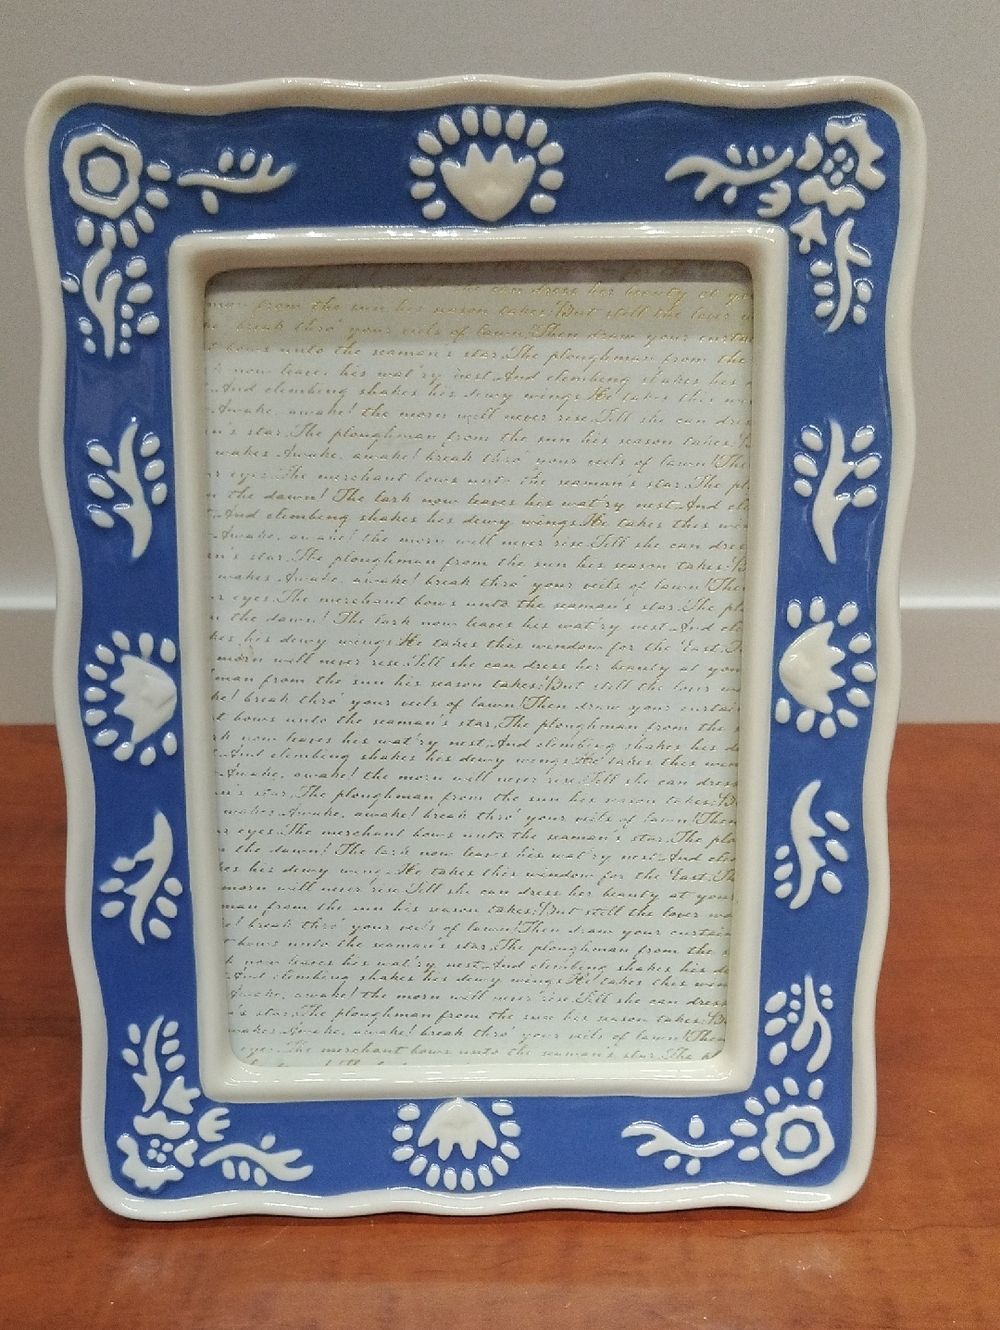 can dress her beauty at yo
man from the sun his season takes; But still the lover w
break thro' your veils of lawn! Then draw your curtai
bows unto the seaman's star, The ploughman from the
now leaves his wat'ry nest, And climbing shakes his
And climbing shakes his dewy wings, He takes this win
Awake, awake! the morn will never rise, Till she can dres
n's star, The ploughman from the sun his season takes;
makes Awake, awake! break thro' your veils of lawn! The
r eyes. The merchant bows unto the seaman's star, The pl
n the dawn! The lark now leaves his wat'ry nest, And cli
And climbing shakes his dewy wings, He takes this win
Awake, awake! the morn will never rise, Till she can dres
n's star, The ploughman from the sun his season takes; B
makes Awake, awake! break thro' your veils of lawn! The
r eyes. The merchant bows unto the seaman's star, The pl
n the dawn! The lark now leaves his wat'ry nest, And cli
kes his dewy wings, He takes this window for the East, T
morn will never rise, Till she can dress her beauty at you
man from the sun his season takes; But still the lover wo
ke! break thro' your veils of lawn! Then draw your curtai
t bows unto the seaman's star, The ploughman from the s
k now leaves his wat'ry nest, And climbing shakes his d
And climbing shakes his dewy wings, He takes this win
Awake, awake! the morn will never rise, Till she can dress
n's star, The ploughman from the sun his season takes; B
makes Awake, awake! break thro' your veils of lawn! Then
r eyes. The merchant bows unto the seaman's star, The plo
n the dawn! The lark now leaves his wat'ry nest, And clim
kes his dewy wings, He takes this window for the East, Th
morn will never rise, Till she can dress her beauty at your
man from the sun his season takes; But still the lover wo
e! break thro' your veils of lawn! Then draw your curtain
t bows unto the seaman's star, The ploughman from the s
k now leaves his wat'ry nest, And climbing shakes his de
And climbing shakes his dewy wings, He takes this win
Awake, awake! the morn will never rise, Till she can dress
n's star, The ploughman from the sun his season takes; B
makes Awake, awake! break thro' your veils of lawn! Then
eyes. The merchant bows unto the seaman's star, The p